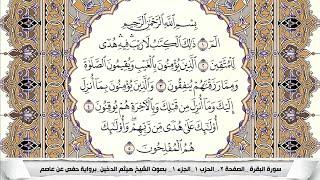 بِسْمِ اللَّهِ الرَّحْمَٰنِ الرَّحِيمِ
الٓمٓ ١ ذَٰلِكَ الْكِتَٰبُ لَا رَيْبَ فِيهِ هُدًى
لِّلْمُتَّقِينَ ٢ الَّذِينَ يُؤْمِنُونَ بِالْغَيْبِ وَيُقِيمُونَ الصَّلَوٰةَ
وَمِمَّا رَزَقْنَٰهُمْ يُنفِقُونَ ٣ وَالَّذِينَ يُؤْمِنُونَ بِمَا أُنزِلَ
إِلَيْكَ وَمَا أُنزِلَ مِن قَبْلِكَ وَبِالْآخِرَةِ هُمْ يُوقِنُونَ ٤
أُولَٰئِكَ عَلَىٰ هُدًى مِّن رَّبِّهِمْ وَأُولَٰئِكَ
هُمُ الْمُفْلِحُونَ ٥
سورة البقرة _ الصفحة ٢ _ الحزب ١ _ الجزء ١ _ بصوت الشيخ هيثم الدخين _ برواية حفص عن عاصم